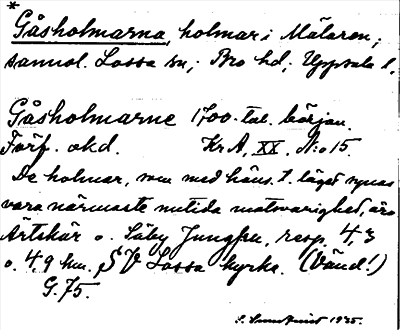 *
Gåsholmarna, holmar i Mälaren;
sannol. Lossa sn; Bro hd; Uppsala l.
Gåsholmarne 1700-tal. början.
Förf. okd. Kr A, XX, N:o 15.
De holmar, som med häns. t. läget synas
vara närmaste nutida motsvarighet, äro
Ärtskär o. Säby Jungfru, resp. 4,3
o. 4,9 km. SV Lossa kyrka. (Vänd!)
G. 75.
1935.